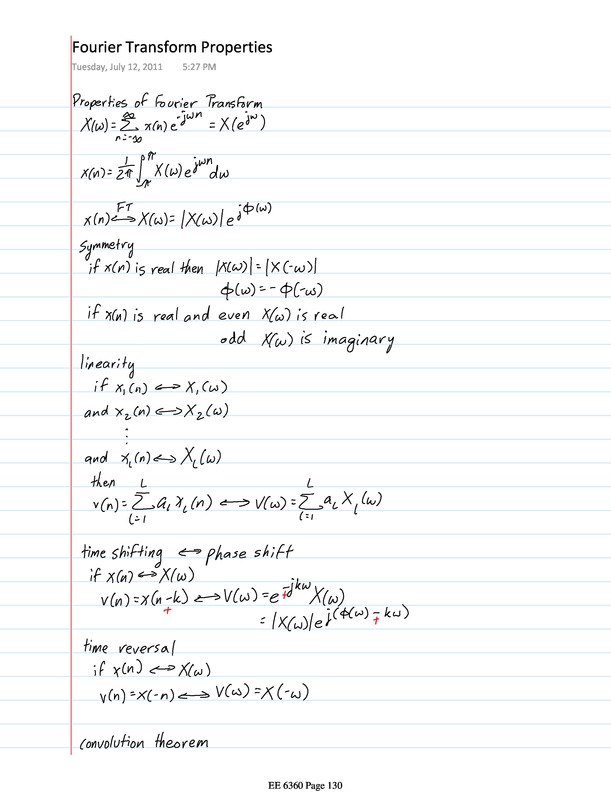 Fourier Transform Properties
Tuesday, July 12, 2011 5:27 PM
Properties of Fourier Transform
X(ω) = ∑_{n=-∞}^{∞} x(n) e^{-jωn} = X(e^{jω})
x(n) = 1/2π ∫_{-π}^{π} X(ω) e^{jωn} dω
x(n) <-FT-> X(ω) = |X(ω)| e^{jΦ(ω)}
Symmetry
if x(n) is real then |X(ω)| = |X(-ω)|
Φ(ω) = -Φ(-ω)
if x(n) is real and even X(ω) is real
odd X(ω) is imaginary
linearity
if x₁(n) ↔ X₁(ω)
and x₂(n) ↔ X₂(ω)
⋮
and x_L(n) ↔ X_L(ω)
then
v(n) = ∑_{l=1}^{L} a_l x_l(n) ↔ V(ω) = ∑_{l=1}^{L} a_l X_l(ω)
time shifting ↔ phase shift
if x(n) ↔ X(ω)
v(n) = x(n-k) ↔ V(ω) = e^{-jkω} X(ω)
+ +
= |X(ω)| e^{j(Φ(ω) - kω)}
+
time reversal
if x(n) ↔ X(ω)
v(n) = x(-n) ↔ V(ω) = X(-ω)
convolution theorem
EE 6360 Page 130